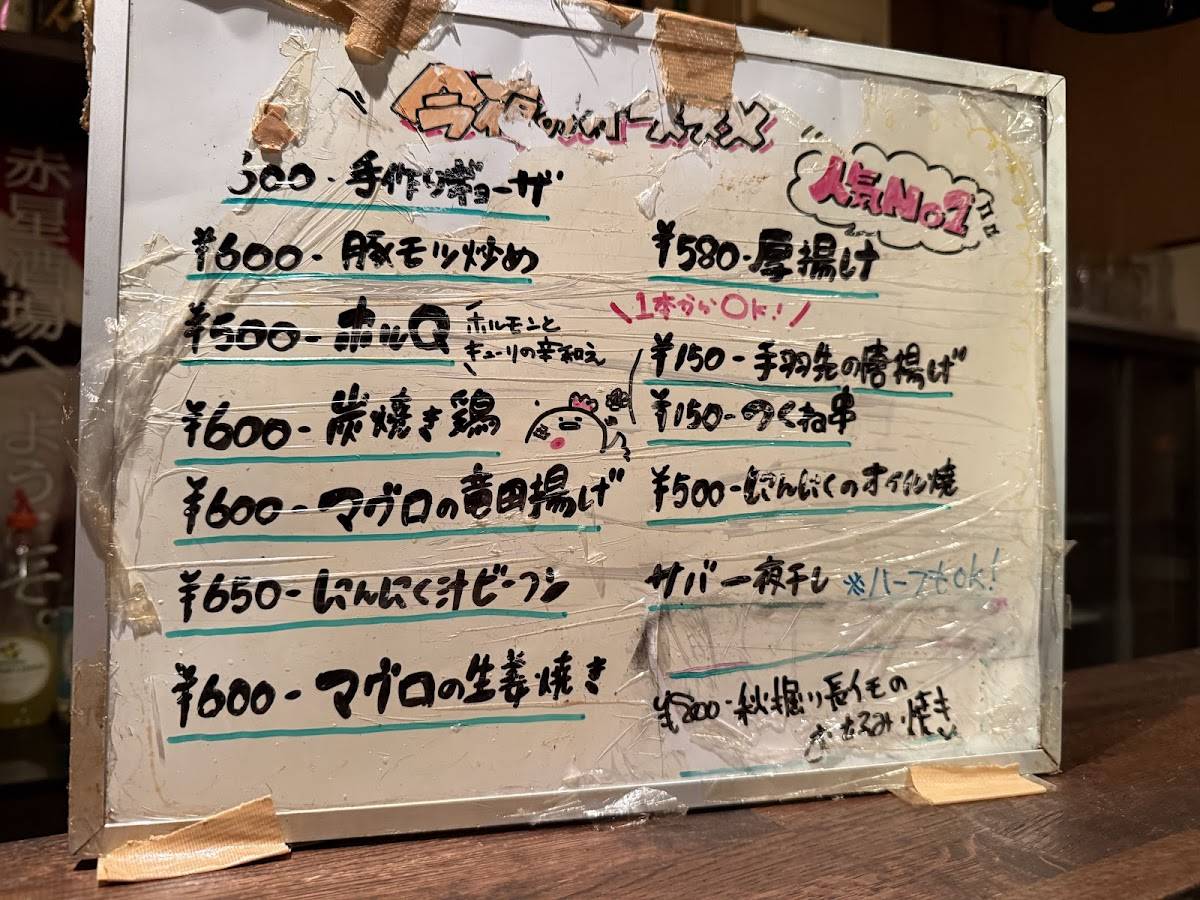 今夜のおススメ
300-手作りギョーザ
¥600-豚モツ炒め
¥500-ホルQ
ホルモンと
キューリの辛和え
¥600-炭焼き鶏
¥600-マグロの竜田揚げ
¥650-にんにく汁ビーフン
¥600-マグロの生姜焼き
人気No1
¥580-厚揚げ
1本からOk!
¥150-手羽先の唐揚げ
¥150-つくね串
¥500-にんにくのオイル焼
サバ一夜干し ※ハーフもOk!
秋掘り長イモの
かたまり焼き
赤星酒場へ、ようこそ。